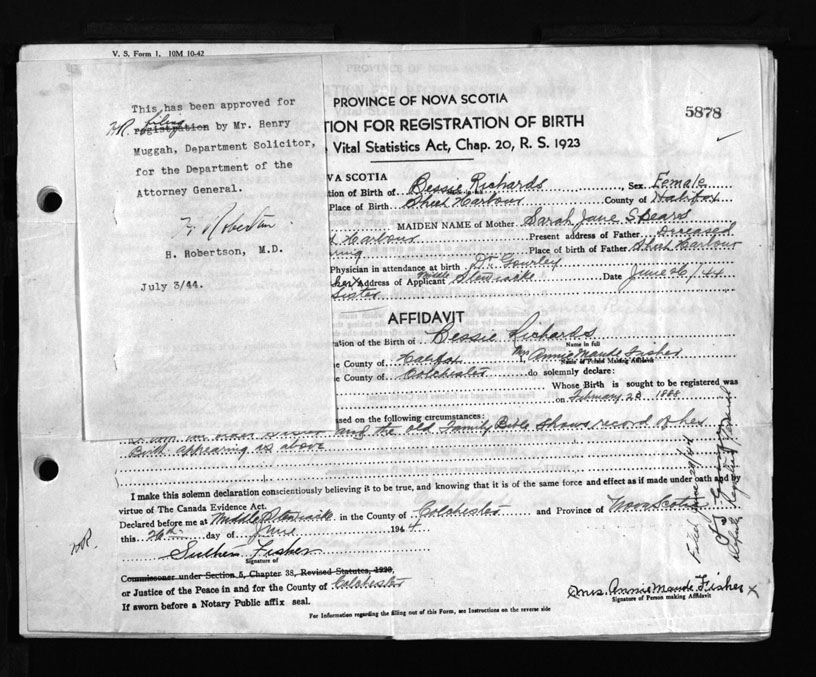 V. S. Form 1. 10M 10-42
This has been approved for
HR. filing
registration by Mr. Henry
Muggah, Department Solicitor,
for the Department of the
Attorney General.
H. Robertson
H. Robertson, M.D.
July 3/44.
PROVINCE OF NOVA SCOTIA
5878
TION FOR REGISTRATION OF BIRTH
Vital Statistics Act, Chap. 20, R. S. 1923
VA SCOTIA
tion of Birth of Bessie Richards, Sex Female
Place of Birth Sheet Harbour County of Halifax
MAIDEN NAME of Mother Sarah Jane Spears
t Harbour Present address of Father Deceased
Place of birth of Father Sheet Harbour
Physician in attendance at birth Dr Gourley
Address of Applicant Middle Stewiacke Date June 26/44
Sister
AFFIDAVIT
ation of the Birth of Bessie Richards
Name in full
e County of Halifax I, Mrs Annie Maude Fisher
Name of Person Making Affidavit
e County of Colchester do solemnly declare:
Whose Birth is sought to be registered was
on February 28 1888
sed on the following circumstances:
and the old Family Bible shows record of her
Birth appearing as above
I make this solemn declaration conscientiously believing it to be true, and knowing that it is of the same force and effect as if made under oath and by
virtue of The Canada Evidence Act.
Declared before me at Middle Stewiacke in the County of Colchester and Province of Nova Scotia
this 26th day of June 1944
HR.
Signature of
Commissoner under Section 5, Chapter 38, Revised Statutes, 1923,
or Justice of the Peace in and for the County of Colchester
If sworn before a Notary Public affix seal.
Mrs. Annie Maude Fisher x
Signature of Person making Affidavit
For Information regarding the filling out of this Form, see Instructions on the reverse side
Filed June 29/44